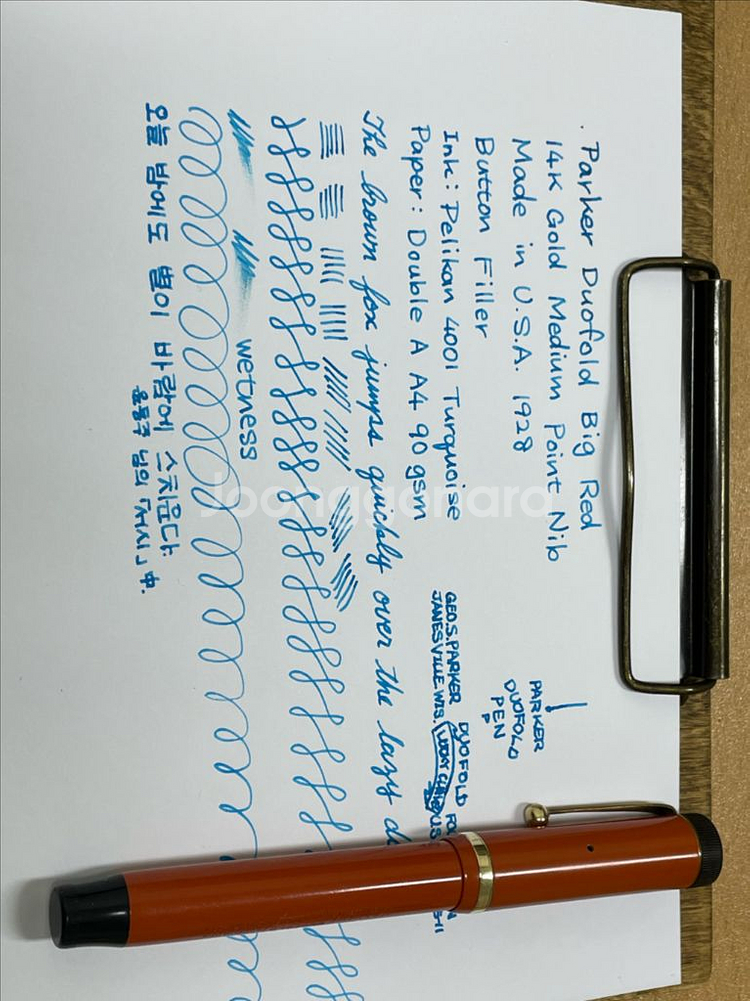 . Parker Duofold Big Red
14K Gold Medium Point Nib
Made in U.S.A. 1928
Button Filler
Ink: Pelikan 4001 Turquoise
Paper: Double A A4 90 gsm
PARKER
DUOFOLD
PEN
GEO.S.PARKER DUOFOLD
JANESVILLE WIS. LUCKY CURVE
The brown fox jumps quickly over the lazy
wetness
오늘 밤에도 별이 바람에 스치운다.
윤동주 님의 「서시」 中.
Joonggonara